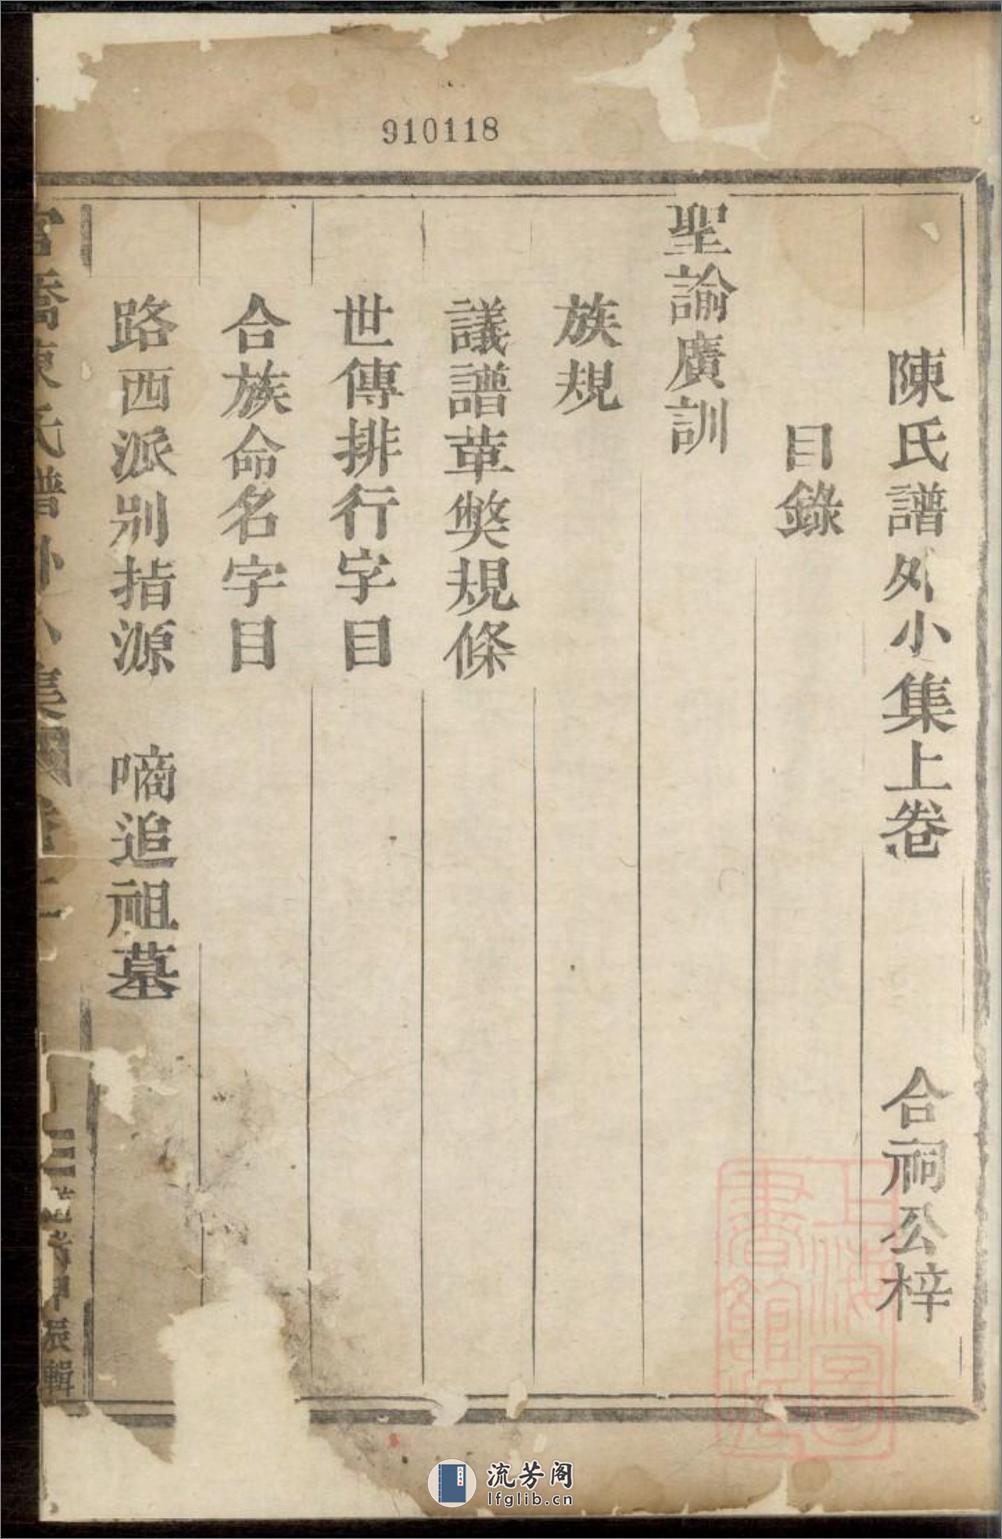 910118
陳氏譜外小集上卷 合祠公梓
目錄
聖諭廣訓
族規
議譜革獘規條
世傳排行字目
合族命名字目
路西派别指源 嘀追祖墓
陳氏譜外小集
甲辰輯
上海圖書館藏
流芳阁
lfglib.cn